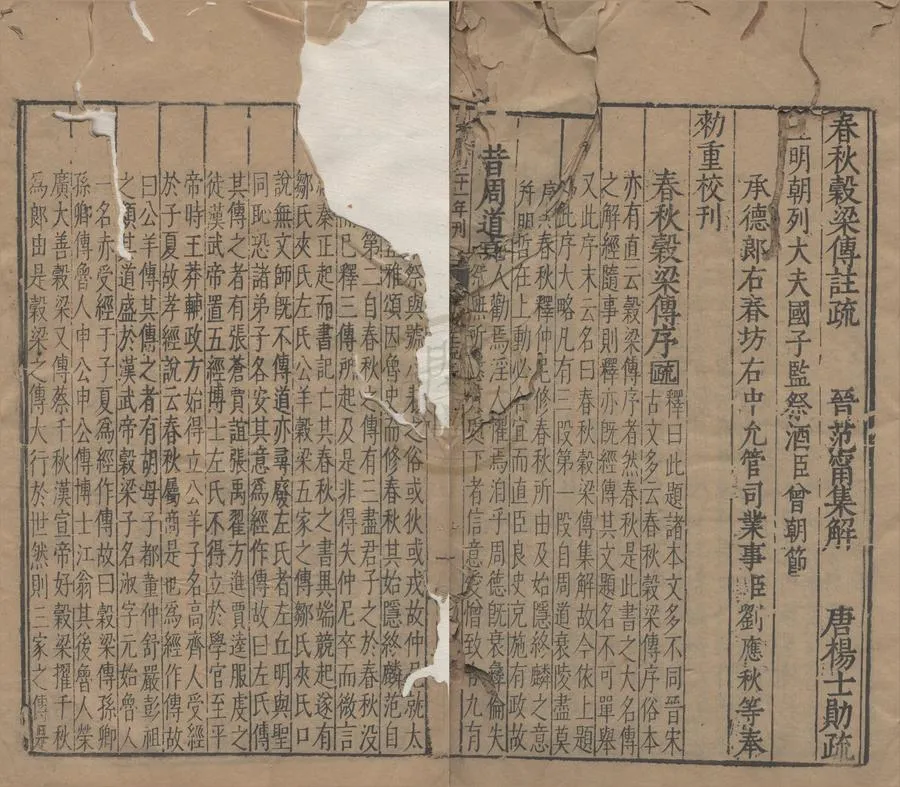 春秋穀梁傳註疏 晉范甯集解 唐楊士勛疏
明朝列大夫國子監祭酒臣曾朝節
承德郎右春坊右中允管司業事臣劉應秋等奉
勑重校刊
春秋穀梁傳序疏 釋曰此題諸本文多不同晉宋
古文多云春秋穀梁傳序俗本
亦有直云穀梁傳序者然春秋是此書之大名傳
之解經隨事則釋亦既經傳共文題名不可單舉
又此序末云名曰春秋穀梁傳集解故今依上題
此序大略凡有三段第一段自周道衰陵盡莫
春秋釋仲尼修春秋所由及始隱終麟之意
哲在上動必合宜而直臣良史克施有政故
人勸焉淫人懼焉洎乎周德既衰彝倫失
下者信意愛憎致 九有
昔周道衰
二十一年刊
祭與號 之俗或狄或戎故仲尼就太
雅頌因魯史而修春秋其始隱終麟范自
第二自春秋之傳有三盡君子之於春秋沒
已釋三傳所起及是非得失仲尼卒而微言
秦正起而書記亡其春秋之書異端競起遂有
鄒氏夾氏左氏公羊穀梁五家之傳鄒氏夾氏口
說無文師既不傳道亦尋廢左氏者左丘明與聖
同恥恐諸弟子各安其意為經作傳故曰左氏傳
其傳之者有張蒼賈誼張禹翟方進賈逵服虔之
徒漢武帝置五經博士左氏不得立於學官至平
帝時王莽輔政方始得立公羊子名高齊人受經
於子夏故孝經說云春秋屬商是也為經作傳故
曰公羊傳其傳之者有胡母子都董仲舒嚴彭祖
之類其道盛於漢武帝穀梁子名淑字元始魯人
一名赤受經于子夏為經作傳故曰穀梁傳傳孫卿
孫卿傳魯人申公申公傳博士江翁其後魯人榮
廣大善穀梁又傳蔡千秋漢宣帝好穀梁擢千秋
為郎由是穀梁之傳大行於世然則三家之傳是